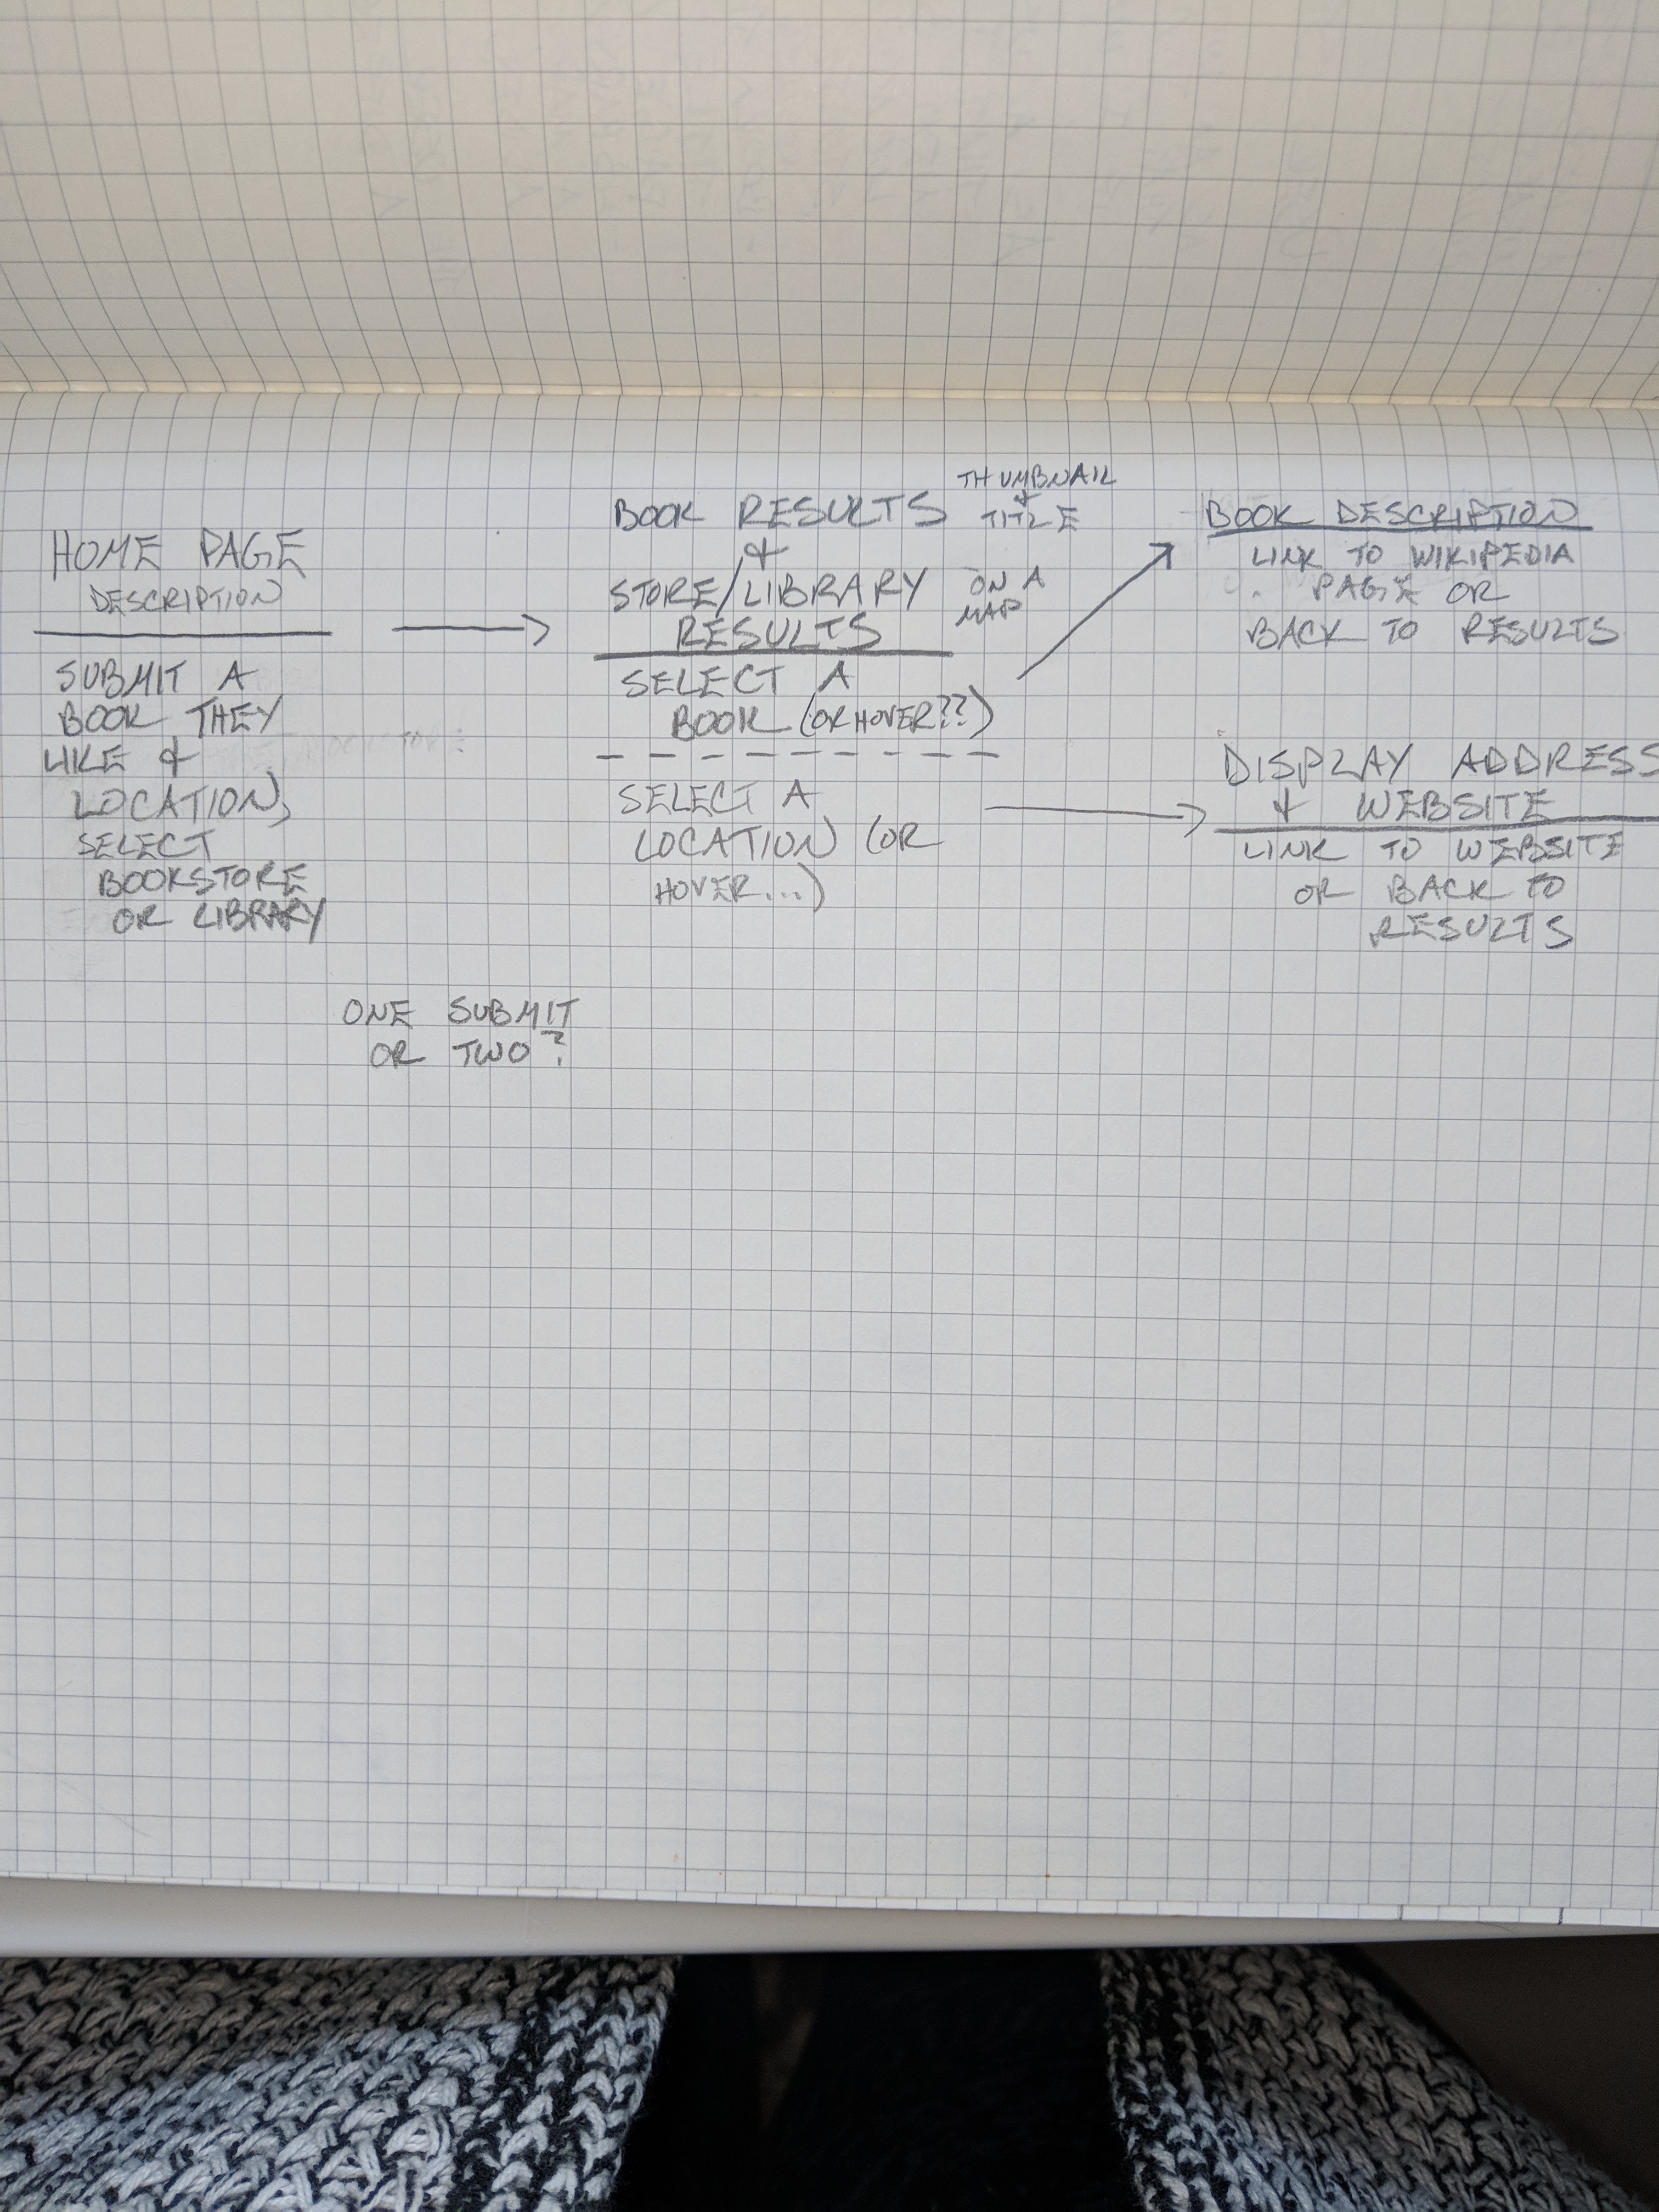 HOME PAGE
DESCRIPTION
SUBMIT A
BOOK THEY
LIKE &
LOCATION,
SELECT
BOOKSTORE
OR LIBRARY
ONE SUBMIT
OR TWO?
BOOK RESULTS
&
STORE/LIBRARY
RESULTS
THUMBNAIL
&
TITLE
ON A
MAP
SELECT A
BOOK (OR HOVER??)
SELECT A
LOCATION (OR
HOVER...)
BOOK DESCRIPTION
LINK TO WIKIPEDIA
PAGE OR
BACK TO RESULTS
DISPLAY ADDRESS
& WEBSITE
LINK TO WEBSITE
OR BACK TO
RESULTS